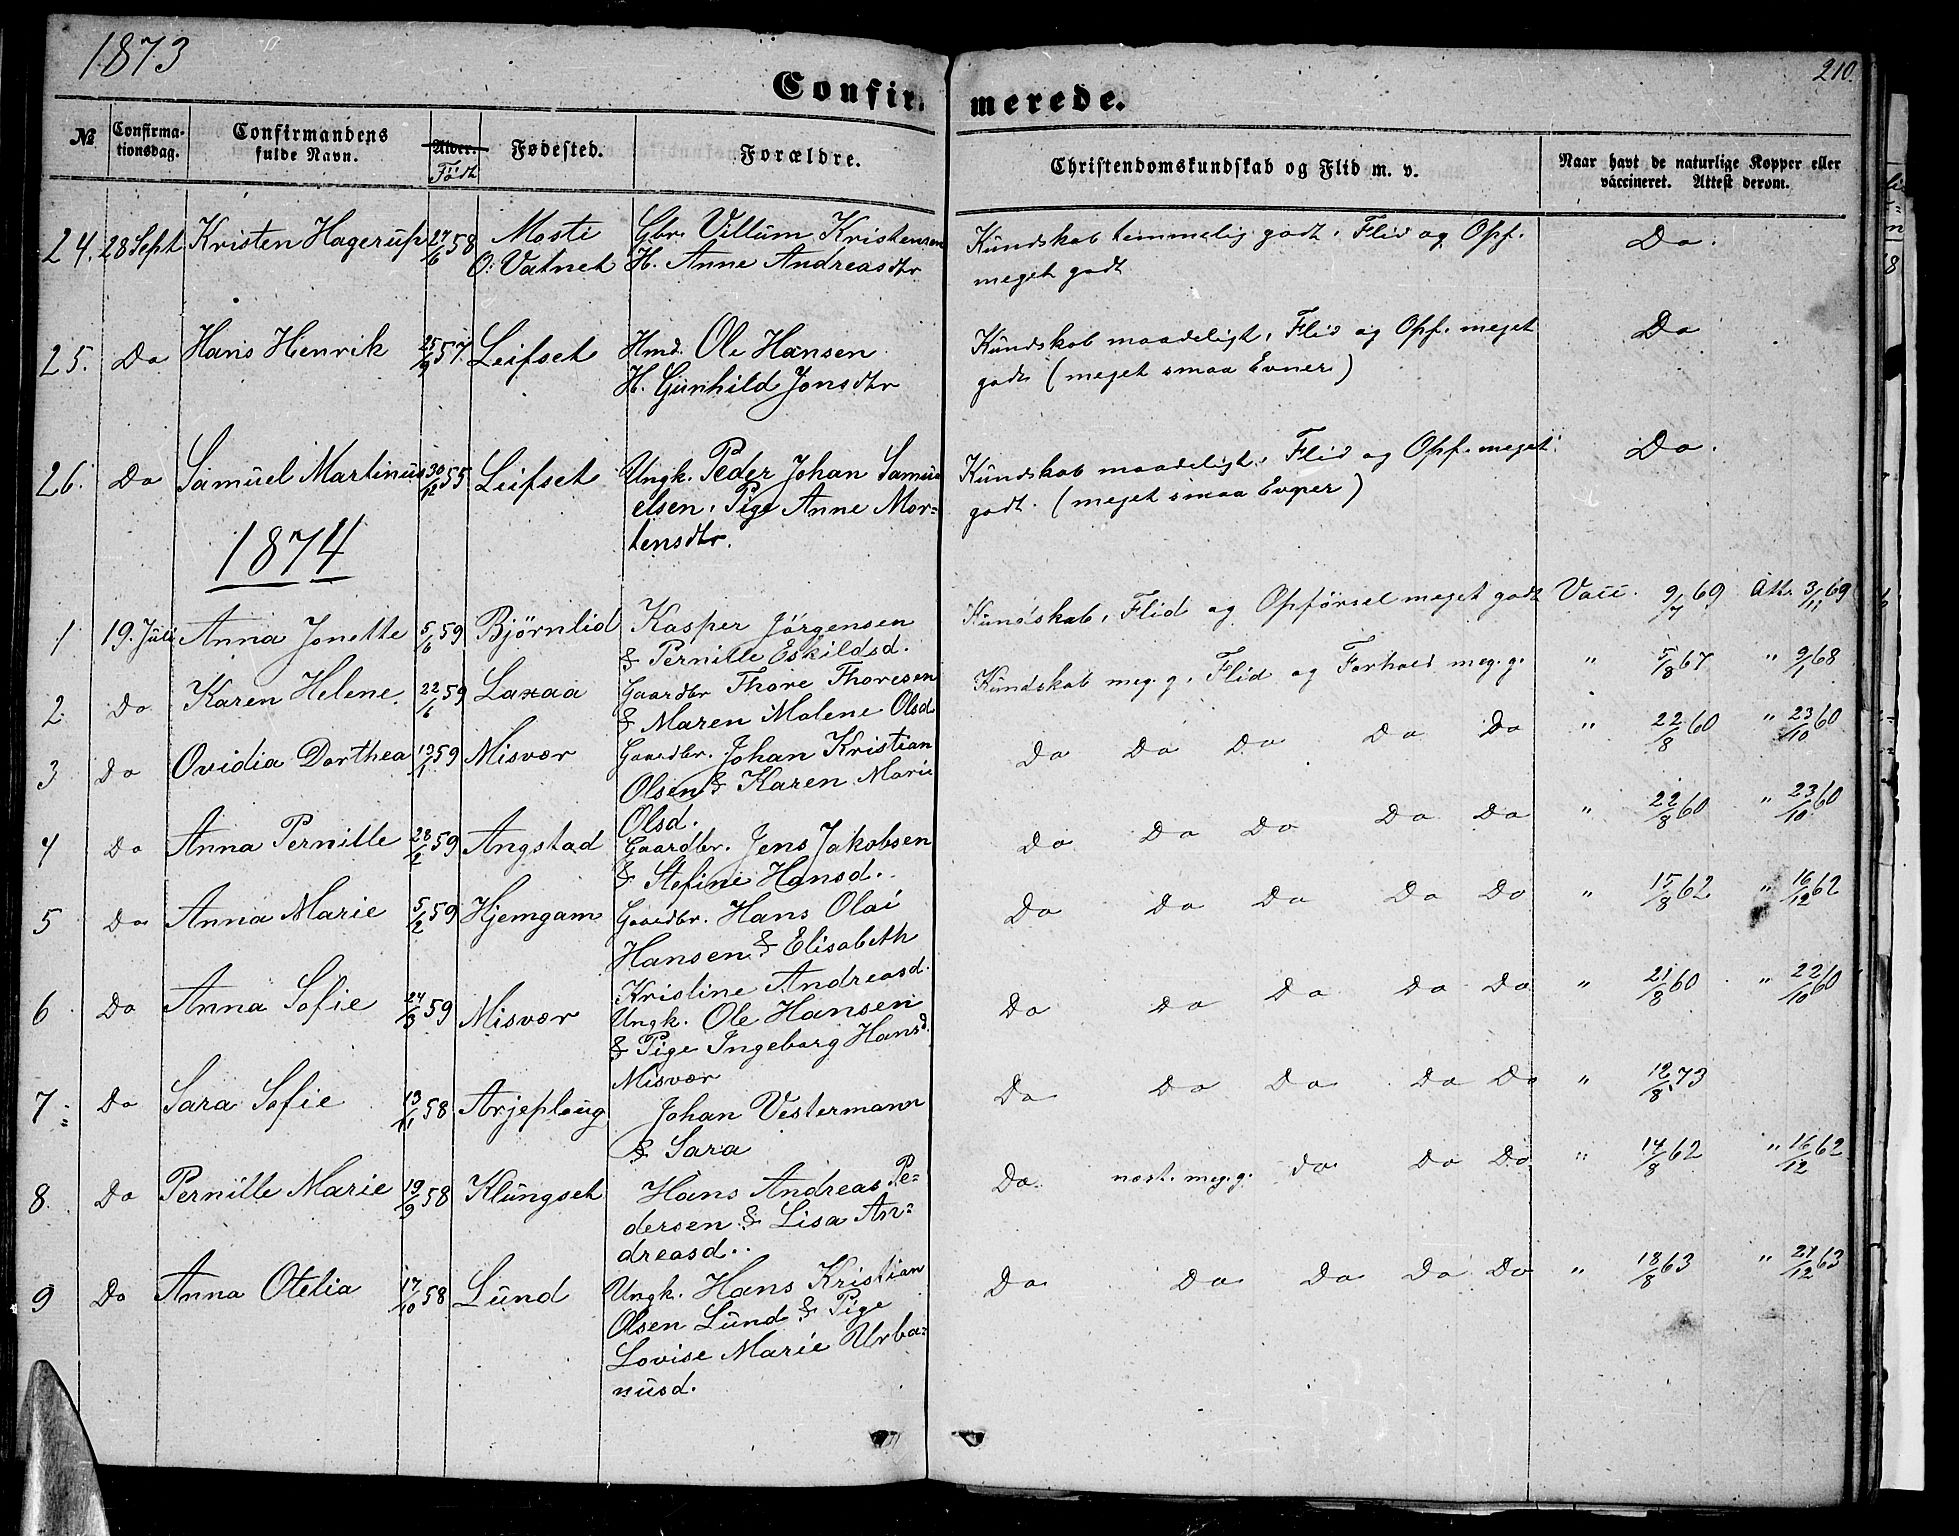 1873
210.
Confir- merede.
№ Confirma-tionsdag. Confirmandens fulde Navn. Alder. Født Fødested. Forældre. Christendomskundskab og Flid m. v. Naar havt de naturlige Kopper eller vaccineret. Attest derom.
24. 28 Sept Kristen Hagerup 27/6 58 Mosti Gbr. Villum Kristensen Kundskab temmelig godt, Flid og Opf. Do.
O: Vatnet H. Anne Andreasdtr meget godt
25. Do Hans Henrik 25/9 57. Leifset Hmd. Ole Hansen Kundskab maadeligt, Flid og Opf. meget Do
H. Gunhild Jonsdtr godt (meget smaa Evner)
26. Do Samuel Martinus 30/12 55 Leifset Ungk. Peder Johan Samu- Kundskab maadeligt, Flid og Opf. meget Do.
elsen, Pige Anne Mor- godt. (meget smaa Evner)
tensdtr.
1874
1 19. Juli Anna Jonette 5/6 59 Bjørnlid Kasper Jørgensen Kundskab, Flid og Opførsel meget godt Vacc. 9/7 69 Att. 3/11 69
& Pernille Eskildsd.
2. Do Karen Helene 22/6 59 Laxaa Gaardbr Thore Thoresen Kundskab meg. g. Flid og Forhold meg. g. " 5/8 67 " 9/1 68
& Maren Malene Olsd
3 Do Ovidia Dorthea 19/1 59 Misvær Gaardbr. Johan Kristian Do Do Do Do Do " 22/8 60 " 23/10 60
Olsen & Karen Marie
Olsd.
4 Do Anna Pernille 28/2 59 Angstad Gaardbr. Jens Jakobsen Do Do Do Do Do " 22/8 60 " 23/10 60
& Stefine Hansd.
5 Do Anna Marie 5/2 59 Hjemgam Gaardbr. Hans Olai Do Do Do Do Do " 15/8 62 " 16/12 62
Hansen & Elisabeth
Kristine Andreasd.
6 Do Anna Sofie 24/3 59 Misvær Ungk. Ole Hansen Do Do Do Do Do " 21/8 60 " 22/10 60
& Pige Ingeborg Hansd.
Misvær
7 Do Sara Sofie 13/11 58 Arjeploug Johan Vestermann Do Do Do Do Do " 12/8 73
& Sara
8. Do Pernille Marie 19/9 58 Klungset Hans Andreas Pe- Do. næst. meg. g. do Do Do " 14/8 62 " 16/12 62
dersen & Lisa An-
dreasd..
9 Do Anna Otelia 17/10 58 Lund Ungk. Hans Kristian Do Do Do Do Do " 18/8 63 " 21/12 63
Olsen Lund & Pige
Lovise Marie Urba-
nusd.